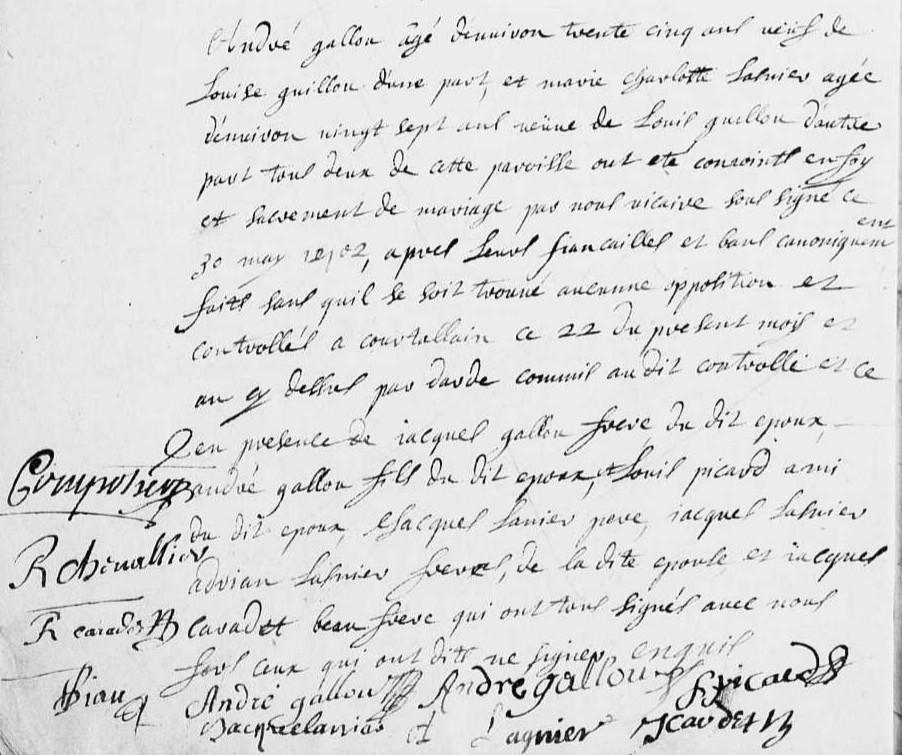 André gallou agé denviron trente cinq ans veuf de
Louise guillou d'une part, et marie charlotte Lasnier agée
d'environ vingt sept ans veüve de Louis guillou d'autre
part tous deux de cette paroisse ont ete conjoints en foy
et sacrement de mariage par nous vicaire sous signé ce
30 may, apres leurs fiancailles et bans canoniquem
ent
faits sans quil se soit trouvé aucunne opposition et
controllés a courtallain ce 22 du present mois et
an cy dessus par darde commis audit controlle et ce
en presence de jacques gallou frere du dit epoux,
andré gallou fils du dit epoux, et Louis picard ami
du dit epoux, Jacques Lanier pere, jacques Lasnier
adrian Lasnier freres, de la dite epouse et jacques
cavadet beau frere qui ont tous signés avec nous
fors ceux qui ont dits ne signer
R chevallier
R
André gallou André gallou picard
Lagnier